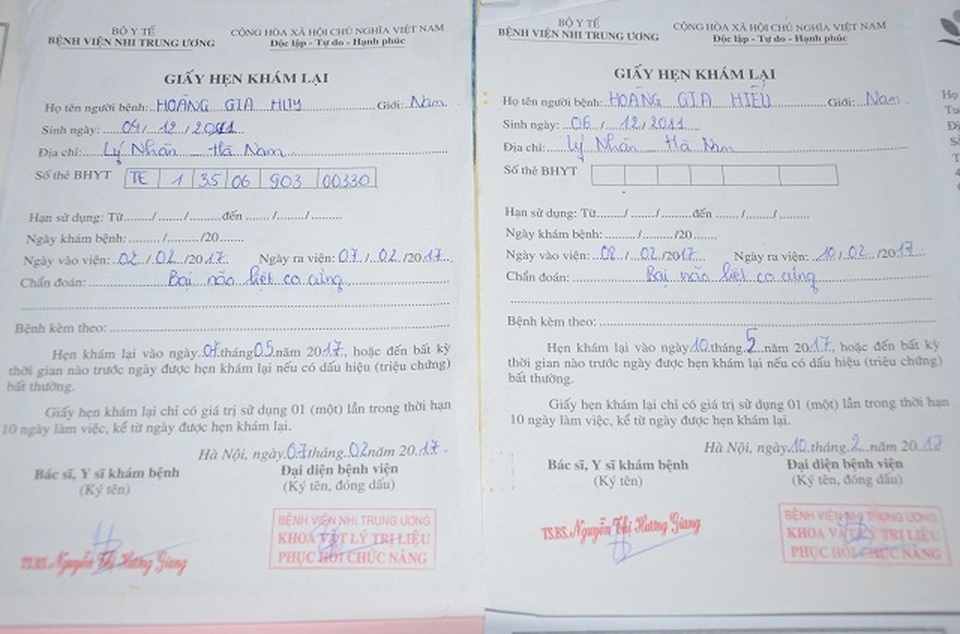 BỘ Y TẾ
BỆNH VIỆN NHI TRUNG ƯƠNG
CỘNG HÒA XÃ HỘI CHỦ NGHĨA VIỆT NAM
Độc lập - Tự do - Hạnh phúc
GIẤY HẸN KHÁM LẠI
Họ tên người bệnh: HOÀNG GIA HUY Giới: Nam
Sinh ngày: 04/ 12 / 2011
Địa chỉ: Lý Nhân - Hà Nam
Số thẻ BHYT TE 1 35 06 903 00330
Hạn sử dụng: Từ....../....../.......đến ....../....../.......
Ngày khám bệnh:....../....../20......
Ngày vào viện: 02 / 02 /2017 Ngày ra viện: 07 / 02 /2017
Chẩn đoán: Bại não liệt co cứng
Bệnh kèm theo:
Hẹn khám lại vào ngày 07 tháng 05 năm 2017, hoặc đến bất kỳ
thời gian nào trước ngày được hẹn khám lại nếu có dấu hiệu (triệu chứng)
bất thường.
Giấy hẹn khám lại chỉ có giá trị sử dụng 01 (một) lần trong thời hạn
10 ngày làm việc, kể từ ngày được hẹn khám lại.
Hà Nội, ngày 07 tháng 02 năm 2017
Bác sĩ, Y sĩ khám bệnh
(Ký tên)
Đại diện bệnh viện
(Ký tên, đóng dấu)
TS.BS. Nguyễn Thị Hương Giang
BỆNH VIỆN NHI TRUNG ƯƠNG
KHOA VẬT LÝ TRỊ LIỆU
PHỤC HỒI CHỨC NĂNG
BỘ Y TẾ
BỆNH VIỆN NHI TRUNG ƯƠNG
CỘNG HÒA XÃ HỘI CHỦ NGHĨA VIỆT NAM
Độc lập - Tự do - Hạnh phúc
GIẤY HẸN KHÁM LẠI
Họ tên người bệnh: HOÀNG GIA HIẾU Giới: Nam
Sinh ngày: 06 / 12 / 2011
Địa chỉ: Lý Nhân - Hà Nam
Số thẻ BHYT
Hạn sử dụng: Từ....../....../.......đến ....../....../.......
Ngày khám bệnh:....../....../20......
Ngày vào viện: 08 / 02 /2017 Ngày ra viện: 10 / 02 /2017
Chẩn đoán: Bại não liệt co cứng
Bệnh kèm theo:
Hẹn khám lại vào ngày 10 tháng 5 năm 2017, hoặc đến bất kỳ
thời gian nào trước ngày được hẹn khám lại nếu có dấu hiệu (triệu chứng)
bất thường.
Giấy hẹn khám lại chỉ có giá trị sử dụng 01 (một) lần trong thời hạn
10 ngày làm việc, kể từ ngày được hẹn khám lại.
Hà Nội, ngày 10 tháng 2 năm 2017
Bác sĩ, Y sĩ khám bệnh
(Ký tên)
Đại diện bệnh viện
(Ký tên, đóng dấu)
TS.BS. Nguyễn Thị Hương Giang
BỆNH VIỆN NHI TRUNG ƯƠNG
KHOA VẬT LÝ TRỊ LIỆU
PHỤC HỒI CHỨC NĂNG